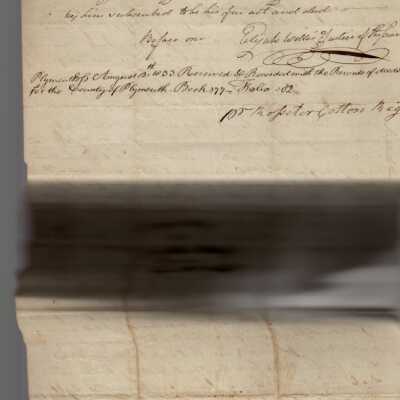 by him subscribed to be his free act and deed
Before me Elijah Willis Justice of the Peace
Plymouth ss August 13th 1833 Received & Recorded with the Records of deeds
for the County of Plymouth Book 177 Folio 182
pr Rossiter Cotton Reg